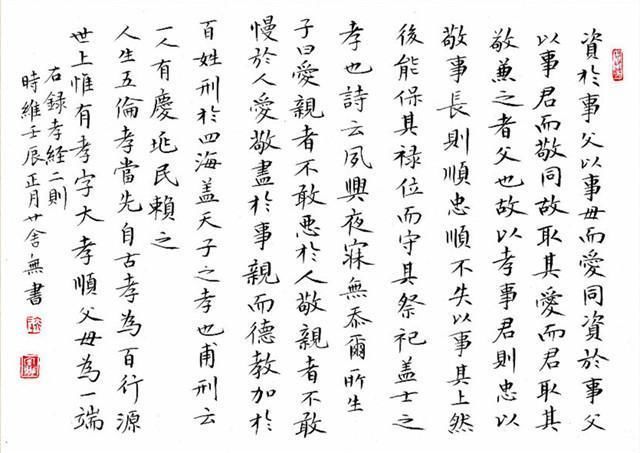 資於事父以事母而愛同資於事父
以事君而敬同故取其愛而君取其
敬兼之者父也故以孝事君則忠以
敬事長則順忠順不失以事其上然
後能保其禄位而守其祭祀盖士之
孝也詩云夙興夜寐無忝爾所生
子曰愛親者不敢惡於人敬親者不敢
慢於人愛敬盡於事親而德教加於
百姓刑於四海盖天子之孝也甫刑云
一人有慶兆民賴之
人生五倫孝當先自古孝為百行源
世上惟有孝字大孝順父母為一端
右録孝经二則
時維壬辰正月廿舍無書